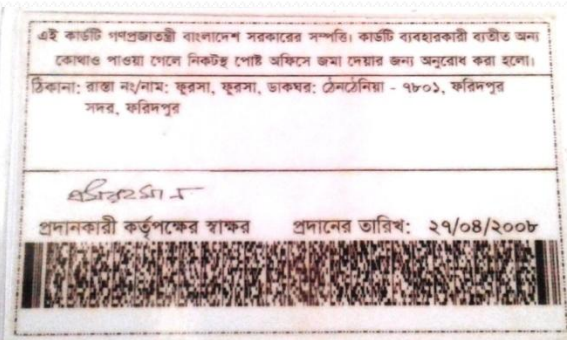 এই কার্ডটি গণপ্রজাতন্ত্রী বাংলাদেশ সরকারের সম্পত্তি। কার্ডটি ব্যবহারকারী ব্যতীত অন্য
কোথাও পাওয়া গেলে নিকটস্থ পোষ্ট অফিসে জমা দেয়ার জন্য অনুরোধ করা হলো।
ঠিকানা: রাস্তা নং/নাম: ফুরসা, ফুরসা, ডাকঘর: ঠেনঠেনিয়া - ৭৮০১, ফরিদপুর
সদর, ফরিদপুর
প্রদানকারী কর্তৃপক্ষের স্বাক্ষর প্রদানের তারিখ: ২৭/০৪/২০০৮